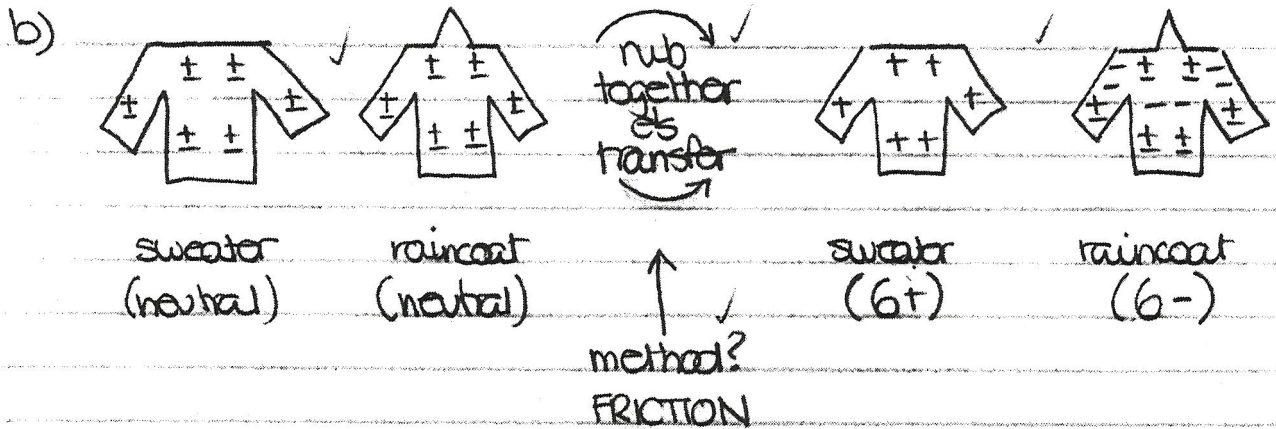 b)
rub
together
e's
transfer
sweater
(neutral)
raincoat
(neutral)
sweater
(6+)
raincoat
(6-)
method?
FRICTION